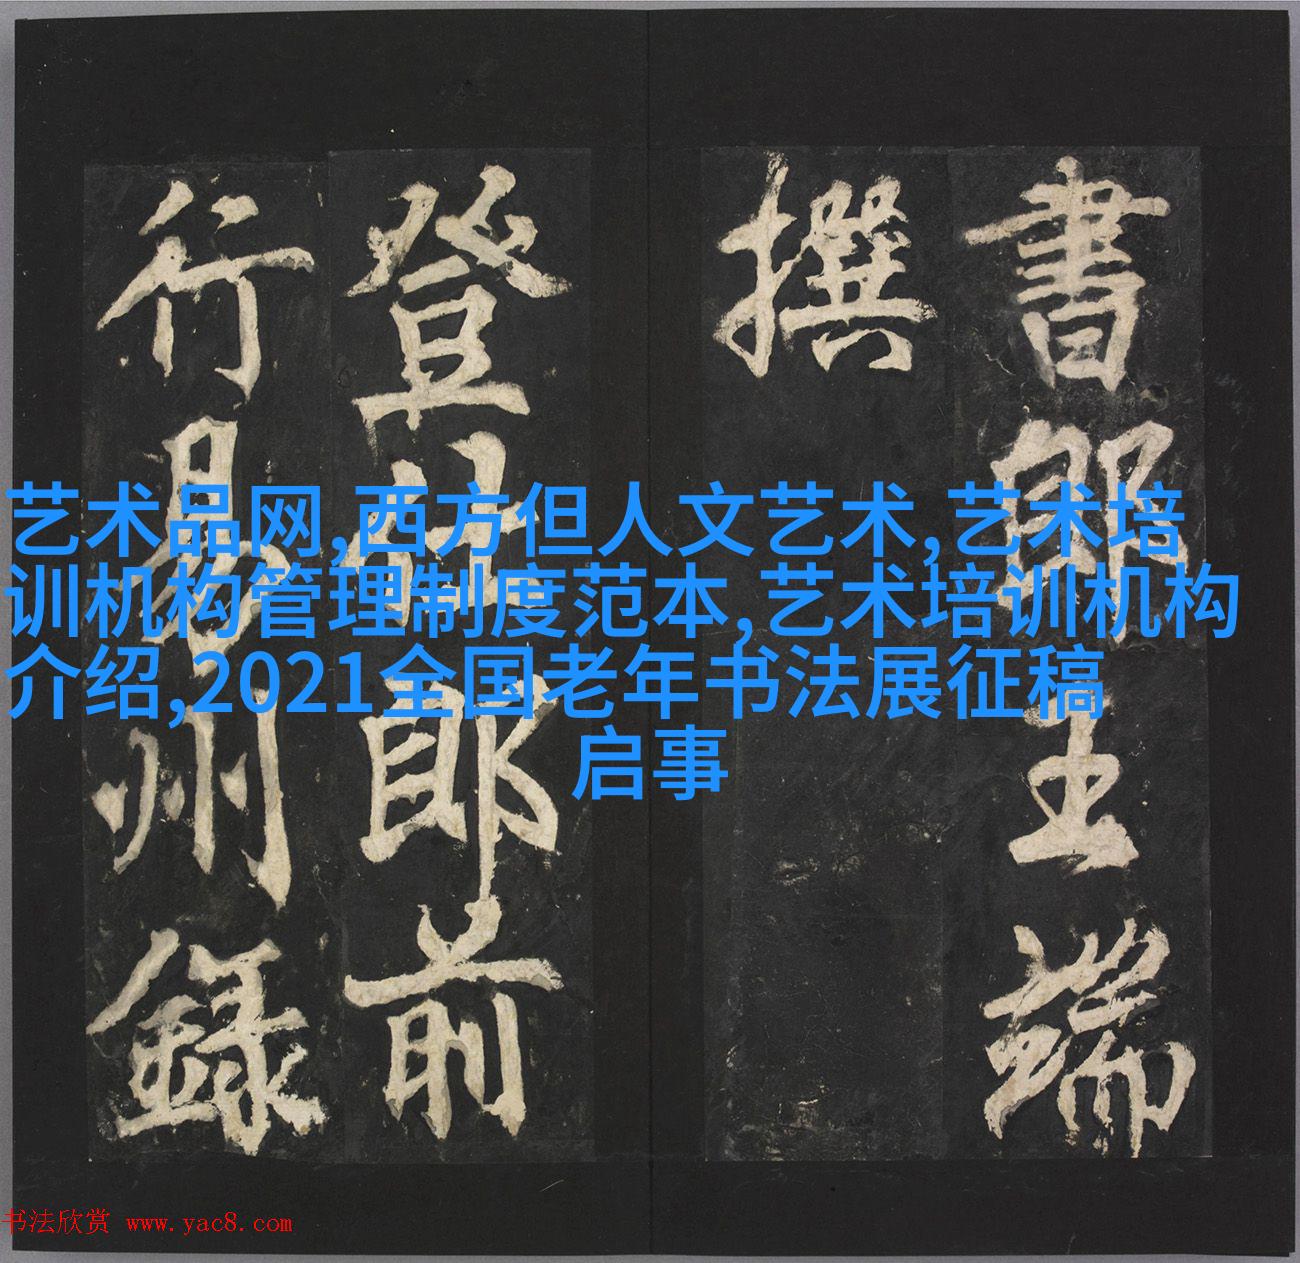 書郎王端
撰
登仕郎前
行易州錄
艺术品网,西方但人文艺术,艺术培
训机构管理制度范本,艺术培训机构
介绍,2021全国老年书法展征稿
启事
书法欣赏 www.yac8.com